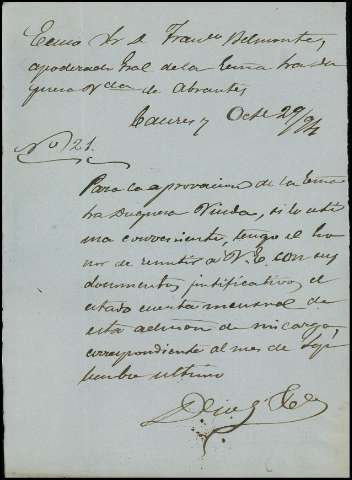 Ecmo Sr D. Franco Belmonte,
apoderado Gral de la Ecma Sra Du
quesa Vda de Abrantes
Caures y Octe 29/94
No 21.
Para la aprovacion de la Ecma
Sra Duquesa Viuda, si lo esti
ma conveniente, tengo el ho
nor de remitir a V. E. con sus
documentos justificativos, el
estado cuenta mensual de
esta admon de mi cargo,
correspondiente al mes de Sep
tiembre ultimo